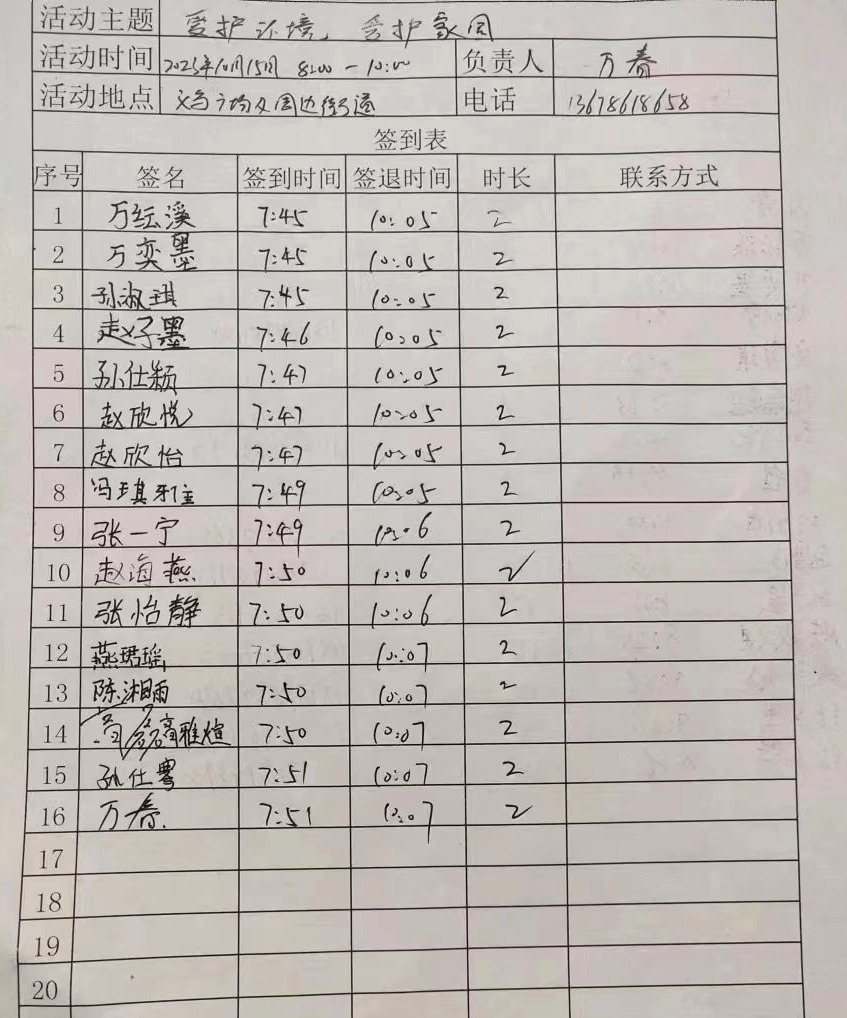 活动主题 爱护环境，爱护家园
活动时间 2025年10月15日 8:00 - 10:00 负责人 万春
活动地点 及周边街道 电话 13678618658
签到表
序号 签名 签到时间 签退时间 时长 联系方式
1 万纭溪 7:45 10:05 2
2 万奕墨 7:45 10:05 2
3 孙淑琪 7:45 10:05 2
4 赵子墨 7:46 10:05 2
5 孙仕颖 7:47 10:05 2
6 赵欣悦 7:47 10:05 2
7 赵欣怡 7:47 10:05 2
8 冯琪雅 7:49 10:05 2
9 张一宁 7:49 10:06 2
10 赵海燕 7:50 10:06 2
11 张怡静 7:50 10:06 2
12 燕珺瑶 7:50 10:07 2
13 陈湘雨 7:50 10:07 2
14 高雅煊 7:50 10:07 2
15 孙仕粤 7:51 10:07 2
16 万春 7:51 10:07 2
17
18
19
20